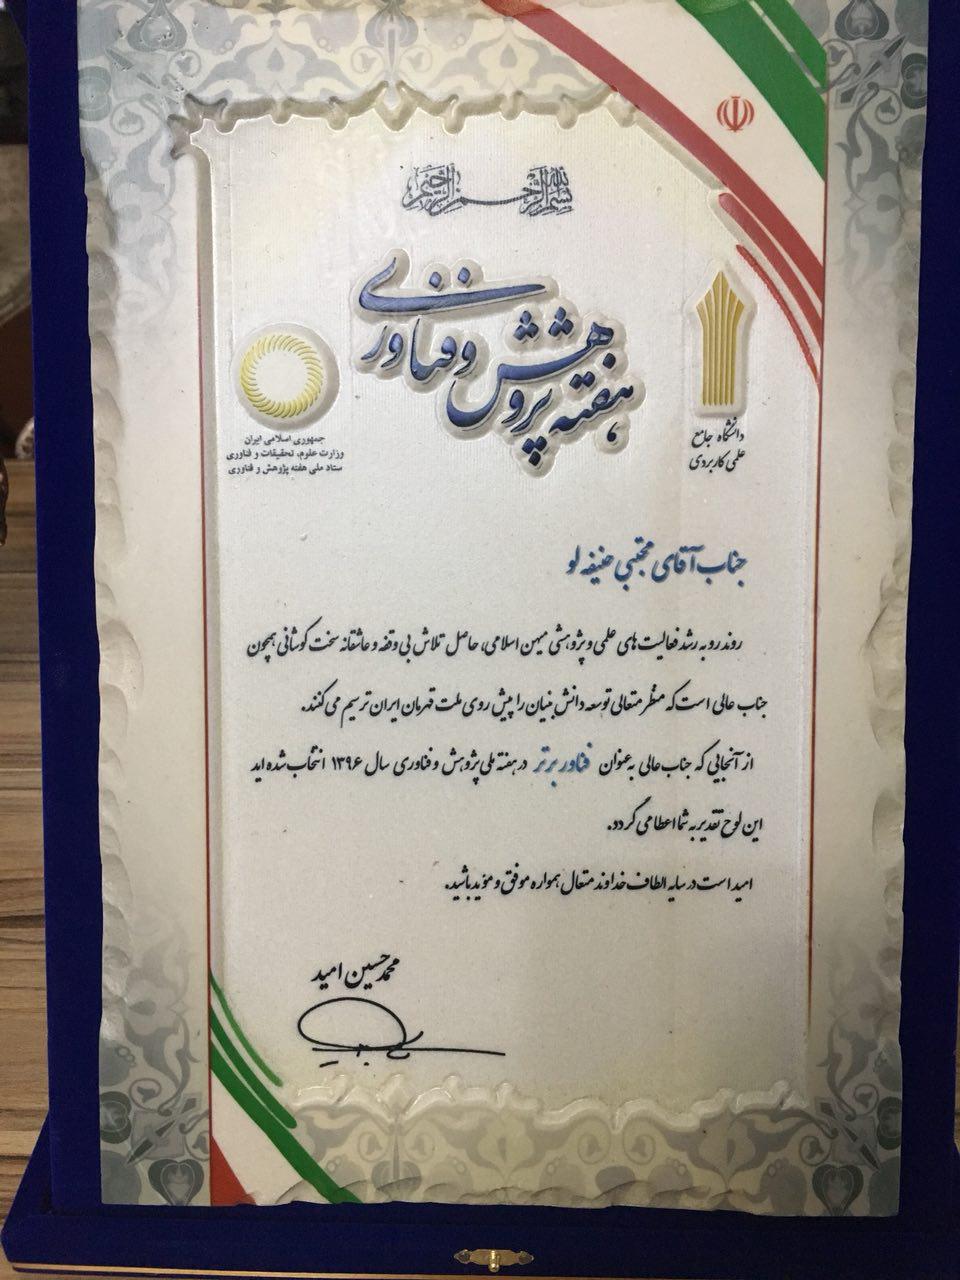 بسم الله الرحمن الرحیم
هفته پژوهش و فناوری
دانشگاه جامع
علمی کاربردی
جمهوری اسلامی ایران
وزارت علوم، تحقیقات و فناوری
ستاد ملی هفته پژوهش و فناوری
جناب آقای مجتبی حنیفه لو
روند رو به رشد فعالیت های علمی و پژوهشی میهن اسلامی، حاصل تلاش بی وقفه و عاشقانه سخت کوشانی همچون
جناب عالی است که منظر متعالی توسعه دانش بنیان را پیش روی ملت قهرمان ایران ترسیم می کنند.
از آنجایی که جناب عالی به عنوان فناور برتر در هفته ملی پژوهش و فناوری سال ۱۳۹۶ انتخاب شده اید
این لوح تقدیر به شما اعطا می گردد.
امید است در سایه الطاف خداوند متعال همواره موفق و موید باشید.
محمد حسین امید